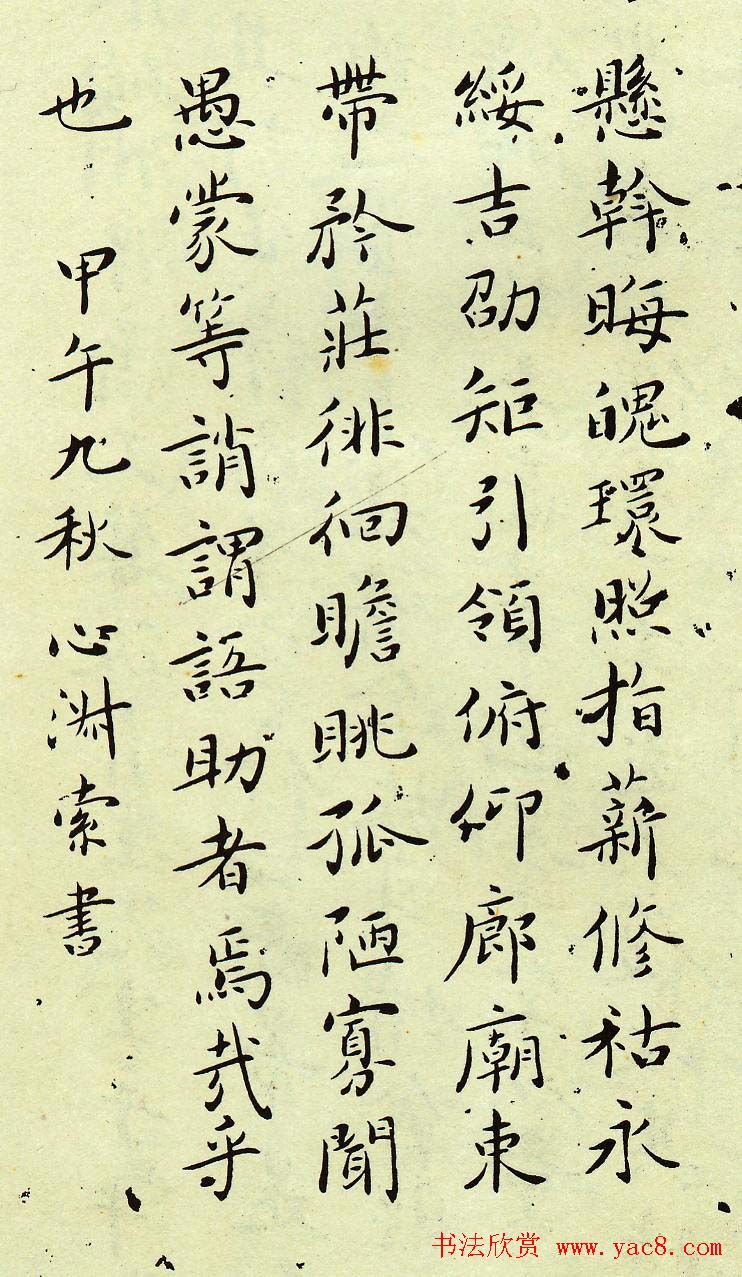 懸斡晦魄環照指薪修祜永
綏吉劭矩引領俯仰廊廟束
帶矜莊徘徊瞻眺孤陋寡聞
愚蒙等誚謂語助者焉哉乎
也 甲午九秋 心淵索書
书法欣赏 www.yac8.com